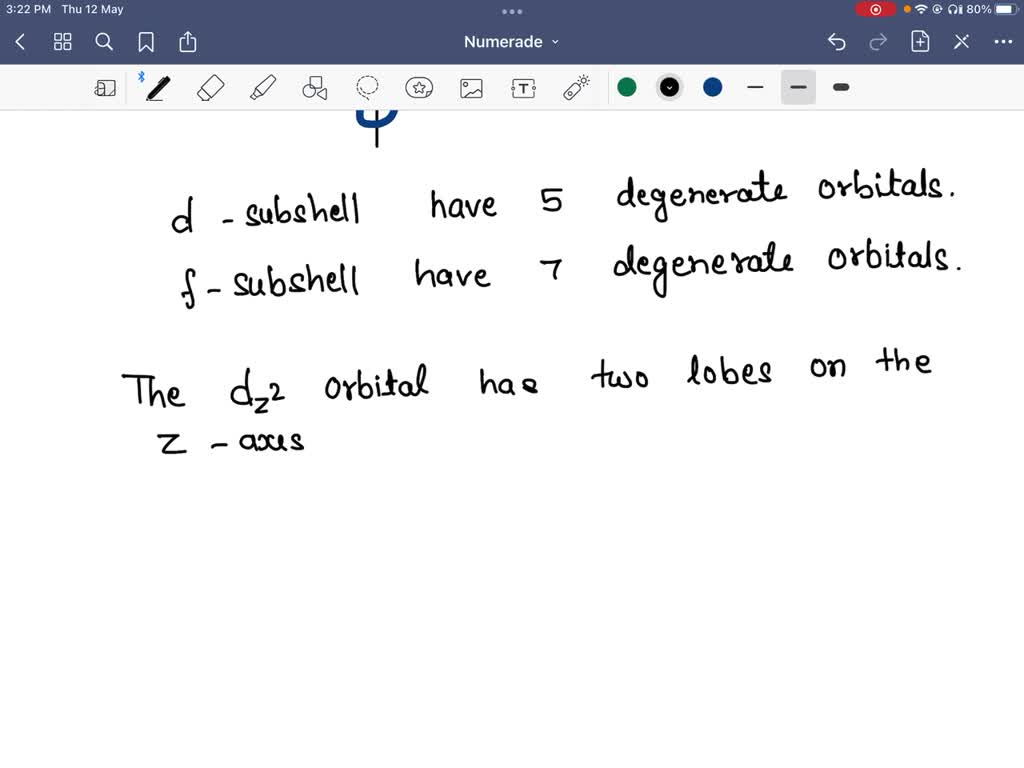 3:22 PM Thu 12 May 80%
Numerade
d - subshell have 5 degenerate orbitals.
f - subshell have 7 degenerate orbitals.
The dz2 orbital has two lobes on the
z - axis